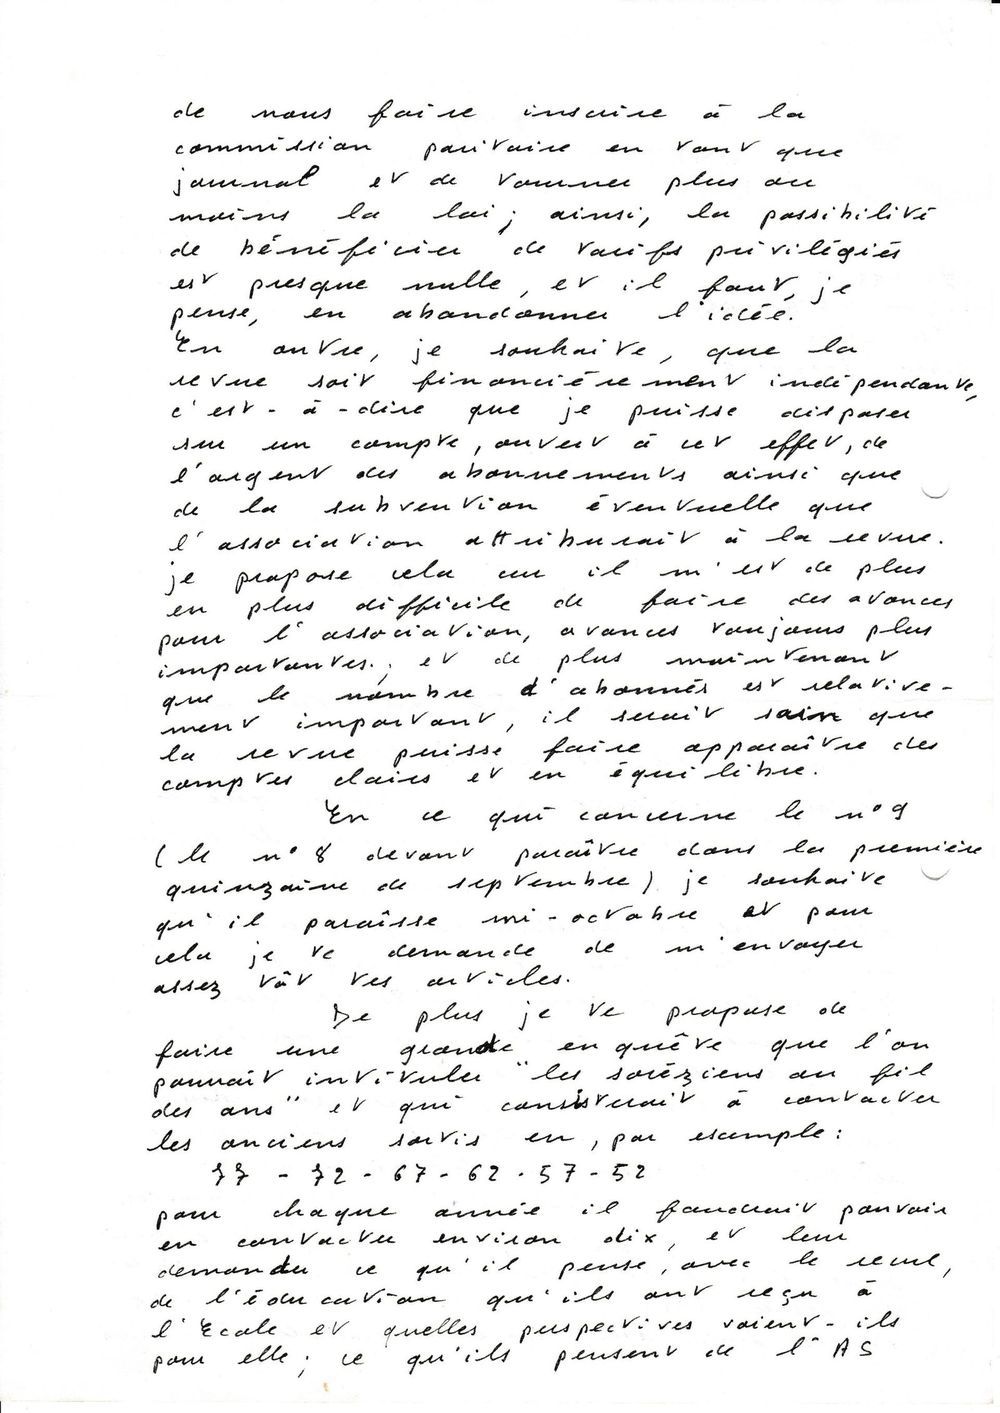 de nous faire inscrire à la
commission paritaire en tant que
journal et de tourner plus ou
moins la loi ; ainsi, la possibilité
de bénéficier de tarifs privilégiés
est presque nulle, et il faut, je
pense, en abandonner l'idée.
En outre, je souhaite, que la
revue soit financièrement indépendante,
c'est-à-dire que je puisse disposer
sur un compte, ouvert à cet effet, de
l'argent des abonnements ainsi que
de la subvention éventuelle que
l'association attribuerait à la revue.
je propose cela car il m'est de plus
en plus difficile de faire des avances
pour l'association, avances toujours plus
importantes. ; et de plus maintenant
que le nombre d'abonnés est relative-
ment important, il serait sain que
la revue puisse faire apparaître des
comptes clairs et en équilibre.
En ce qui concerne le n° 9
( le n° 8 devant paraître dans la première
quinzaine de septembre) je souhaite
qu'il paraîsse mi-octobre et pour
cela je te demande de m'envoyer
assez tôt tes articles.
De plus je te propose de
faire une grande enquête que l'on
pourrait intituler "les soréziens au fil
des ans" et qui consisterait à contacter
les anciens sortis en, par exemple :
77 - 72 - 67 - 62 - 57 - 52
pour chaque année il faudrait pouvoir
en contacter environ dix, et leur
demander ce qu'il pense, avec le recul,
de l'éducation qu'ils ont reçu à
l'Ecole et quelles perspectives voient-ils
pour elle ; ce qu'ils pensent de l'AS